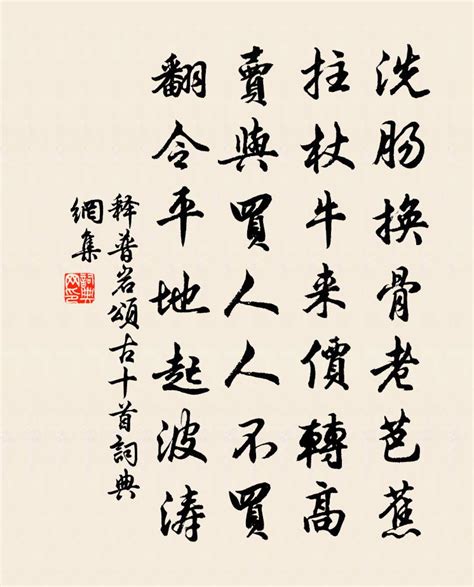 洗肠换骨老芭蕉
拄杖牛来價轉高
賣與買人人不買
翻令平地起波涛
释普岩頌古十首詞典
網集
詞典网印